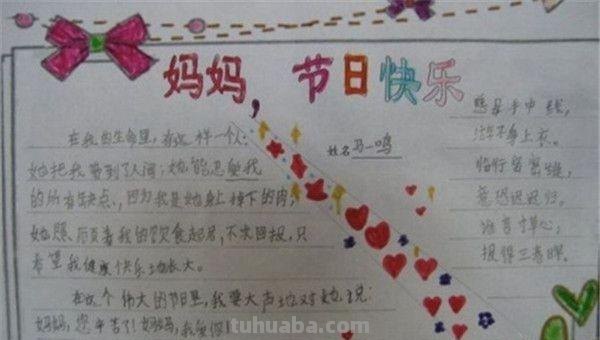 妈妈，节日快乐
姓名 马一鸣
在我的生命里，有这样一个人：
她把我带到了人间；她能忍受我
的所有缺点，因为我是她身上掉下的肉，
她照顾着我的饮食起居，不求回报，只
希望我健康快乐地长大。
在这个伟大的节日里，我要大声地对她说：
妈妈，您辛苦了！妈妈，我爱你！
慈母手中线，
游子身上衣。
临行密密缝，
意恐迟迟归。
谁言寸草心，
报得三春晖。
tuhuaba.com